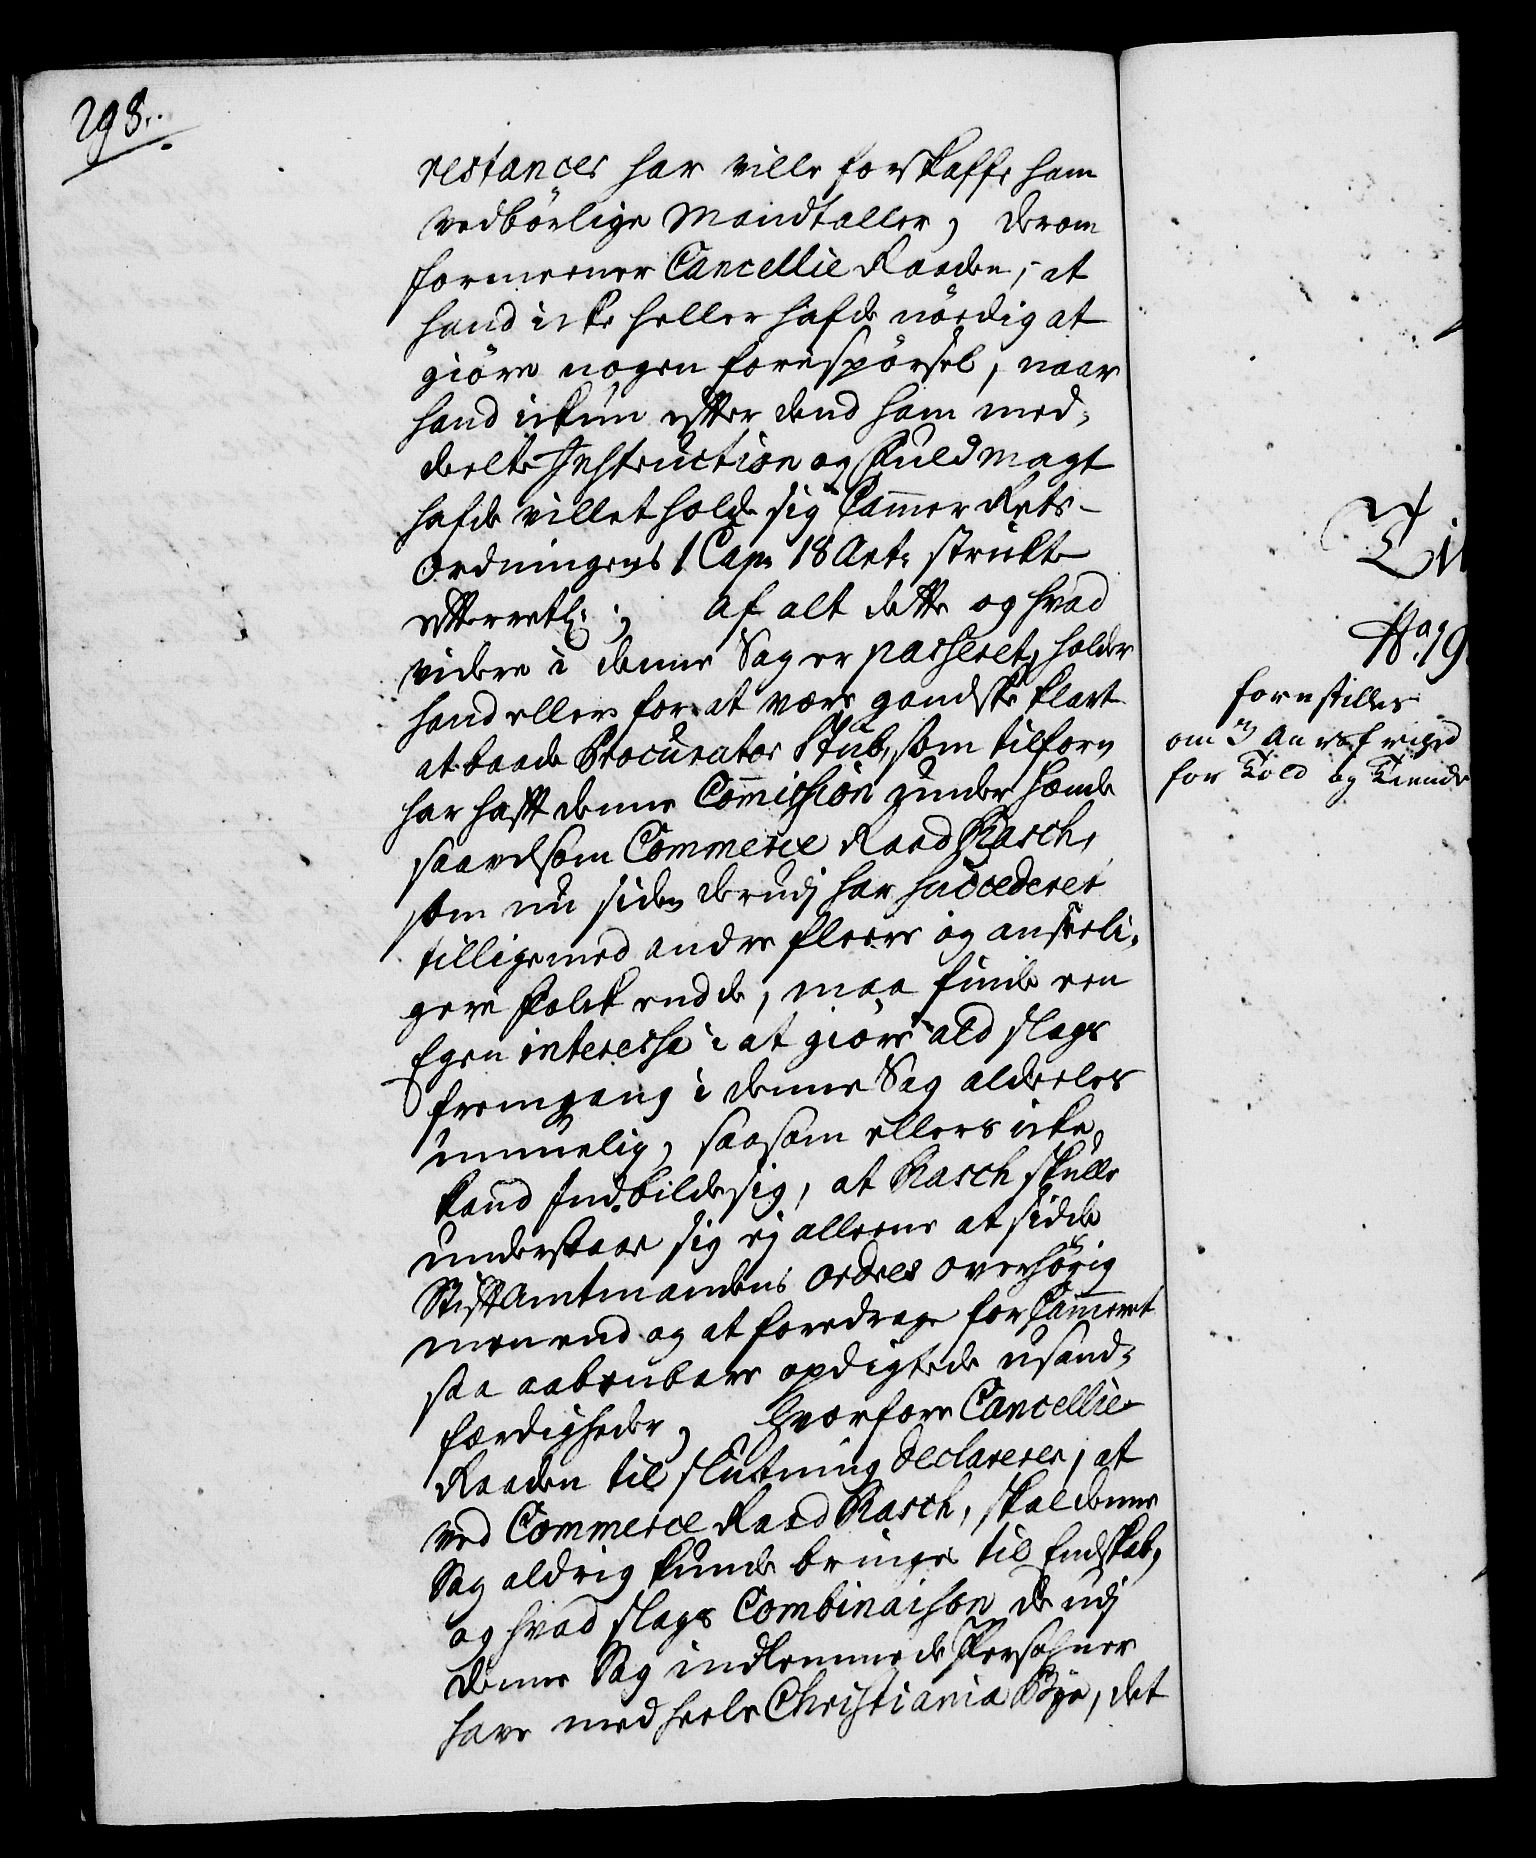 298.
restancer har ville forskaffe ham
vedbörlige Mandtaller, derom
formeener Cancellie Raaden, at
hand icke heller hafde nödig at
giöre nogen forespörsel, naar
hand ickun efter dend ham med-
deelte Instruction og Fuldmagt
hafde villet holde sig Cammer Rets-
Ordningens 1 Cap. 18 Art. strickte
efterretl: ; af alt dette og hvad
videre i denne Sag er passeret, holder
hand ellers for at være gandske klart
at baade Procurator Stub, som tilforn
har haft denne Commission under hænde
saavelsom Commerce Raad Rasch,
som nu siden derudj har succederet
tilligemed andre fleere og anseeli-
gere Folck endde, maa finde een
Egen interesse i at giöre ald slags
fremgang i denne Sag aldeeles
umuelig, saasom ellers icke
kand Indbilde sig, at Rasch skulle
understaae sig ej alleene at sidde
Stiftamtmandens ordres overhörig
men end og at foredrage for Cammeret
saa aabenbare opdigtede usand-
færdigheder, hvorfore Cancellie
Raaden til slutning declarerer, at
ved Commerce Raad Rasch, skal denne
Sag aldrig kunde bringes til Endskab,
og hvad slags Combinaison de udj
denne Sag indlemmede Persohner
have med heele Christiania Bye, det
No. 19
forestilles
om 3 Aars frihed
for Told og Tiende